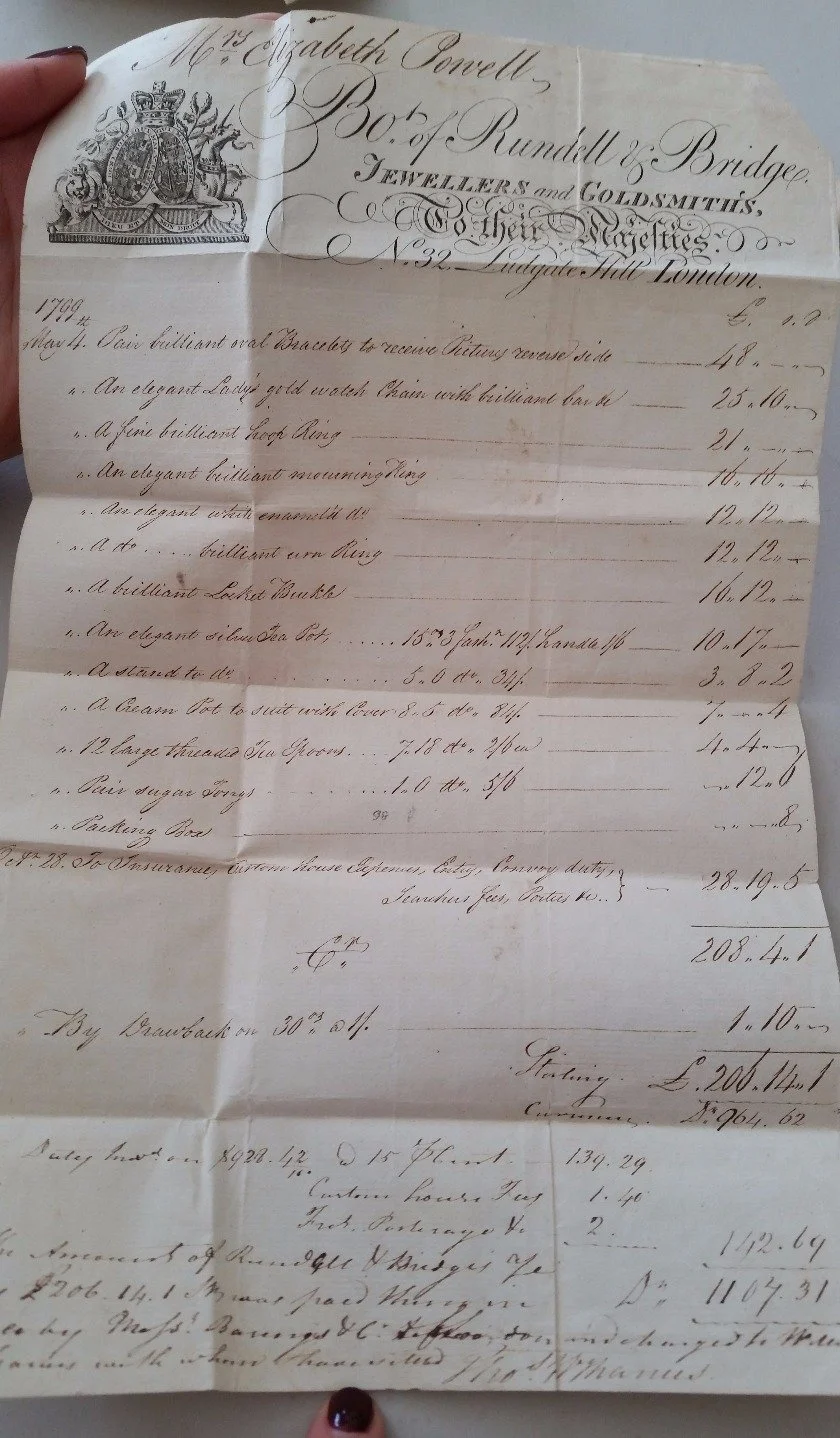 Mrs. Elizabeth Powell
Bot. of Rundell & Bridge.
JEWELLERS and GOLDSMITHS,
To their Majesties.
No. 32 Ludgate Hill London.
1799 £. s. d
May 4th. Pair brilliant oval Bracelets to receive Pictures reverse side 48 " - " -
" An elegant Lady's gold watch Chain with brilliant 25 " 10 " -
" A fine brilliant hoop Ring 21 " - " -
" An elegant brilliant mourning Ring 16 " 16 " -
" An elegant white enamel'd do 12 " 12 " -
" A do ..... brilliant urn Ring 12 " 12 " -
" A brilliant Locket Buckle 16 " 12 " -
" An elegant silver Tea Pot, ...... 15 " 3 fashn 112/. handle 1/6 10 " 17 " -
" A stand to do .......... 5 " 0 do " 34/. 3 " 8 " 2
" A Cream Pot to suit with Cover 8 " 5 do " 84/. 7 " - " 4
" 12 Large threaded Tea Spoons ... 7 " 18 do " 2/6 ea 4 " 4 " -
" Pair sugar Tongs .......... 1 " 0 do " 5/6 - " 12 "
" Packing Box - " - " 8
28. To Insurance, Custom House Expenses, Entry, Convoy duty,
Searchers fees, Porters &c.. } 28 " 19 " 5
208 " 4 " 1
" Cr. "
" By Drawback on 30 oz @ 1/. 1 " 10 " -
Sterling. £. 206 " 14 " 1
Currency. Drs 964. 62
Duty on $928.42 @ 15 139. 29
Custom house Fees 1. 40
Porterage & 2
142.69
Amount of Rundell & Bridges
£206. 14. 1 was paid them in Drs 1107.31
by Messrs. & Co. and charged to
with whom I have settled Thos.